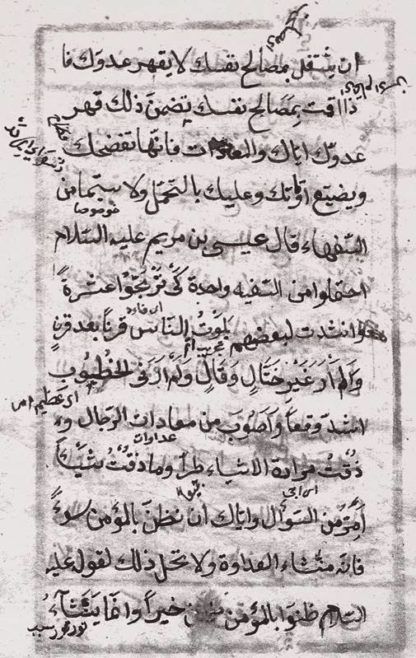 ان تشتغل بمصالح نفسك لا بقهر عدوك فا
ذا اقمت بمصالح نفسك تضمن ذلك قهر
عدوك اياك والمعادات فانها تفضحك
ويضيع اوقاتك وعليك بالتحمل ولا سيما من
خصوصا
السفهاء قال عيسى بن مريم عليه السلام
احتملوا من السفيه واحدة كى تربحوا عشرة
وانشدت لبعضهم بلوت الناس قرنا بعد قرن
ولم ار غير ختال وقال ولم ار فى الخطوب
اشد وقعا واصعب من معادات الرجال و
عداوات
ذقت مرارة الاشياء طرا وما ذقت شيئا
امر من السؤال واياك ان تظن بالمؤمن سوءً
فانه منشاء العداوة ولا تحل ذلك لقوله عليه
السلام ظنوا بالمؤمنين خيرا وانما ينشاء